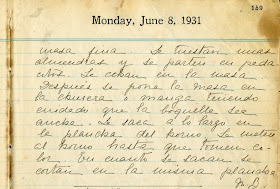 159
Monday, June 8, 1931
masa fina. Se tuestan unas
almendras y se parten en peda
citos. Se echan en la masa
Después se pone la masa en
la churera o manga teniendo
cuidado que la boquilla sea
ancha. Se saca a lo largo en
la plancha del horno. Se meten
al horno hasta que tomen co
lor. En cuanto se sacan se
cortan en la misma plancha